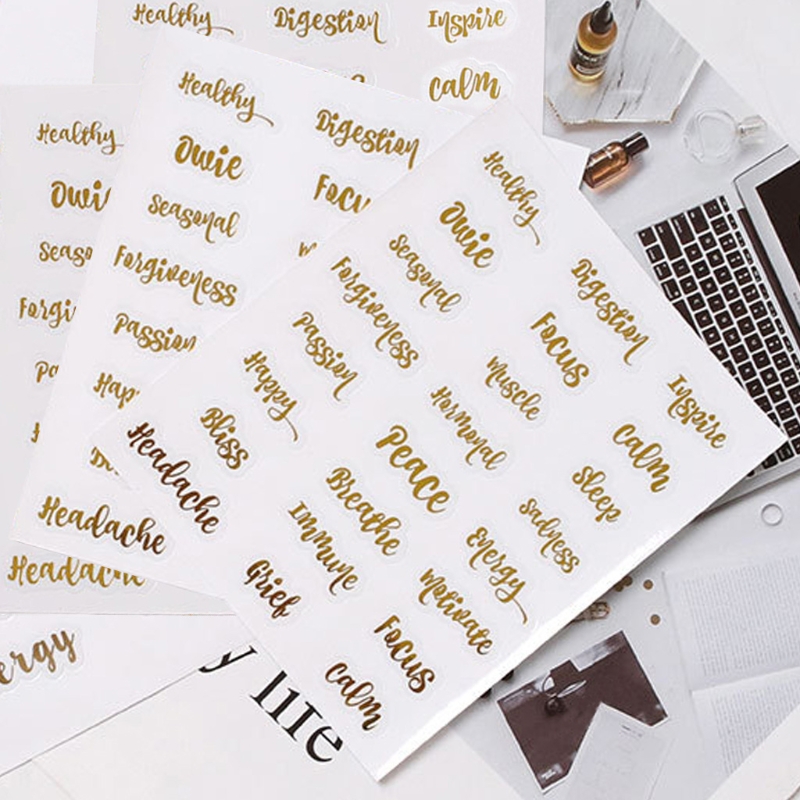 Healthy
Digestion
Inspire
calm
Healthy
Owie
Seasonal
Forgiveness
Passion
Headache
Healthy
Digestion
Owie
Focus
Seasonal
Forgiveness
Passion
Happy
Headache
Healthy
Owie
Seasonal
Forgiveness
Passion
Happy
Bliss
Headache
Digestion
Focus
Muscle
Hormonal
Peace
Breathe
Immune
Grief
Inspire
calm
Sleep
Sadness
Energy
Motivate
Focus
calm
Energy
y life